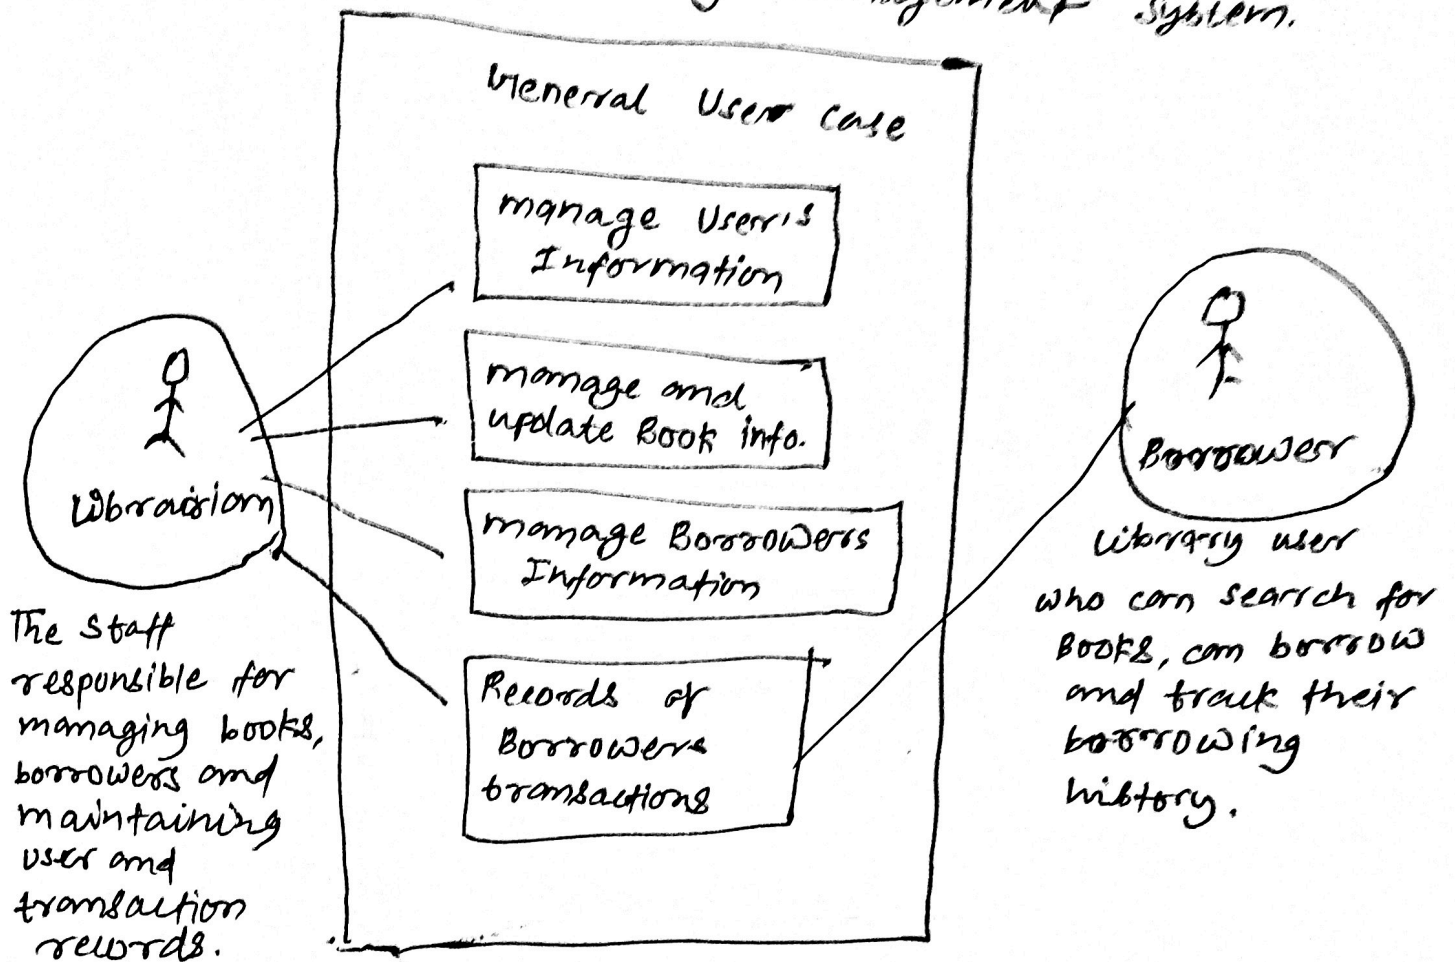 System.
General User case
manage User's
Information
manage and
update Book info.
manage Borrowers
Information
Records of
Borrowers
transactions
Librarian
The Staff
responsible for
managing books,
borrowers and
maintaining
user and
transaction
records.
Borrower
Library user
who can search for
Books, can borrow
and track their
borrowing
history.